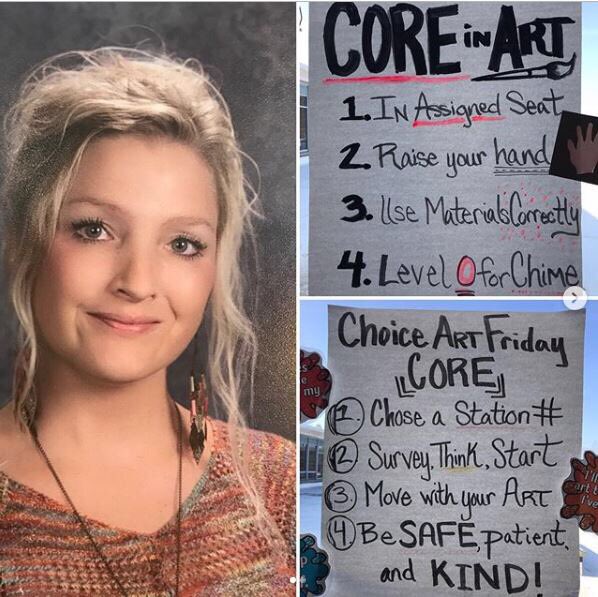 CORE IN ART
1. IN Assigned Seat
2. Raise your hand
3. Use Materials Correctly
4. Level 0 for Chime
Choice ART Friday
"CORE"
1. Chose a Station #
2. Survey, Think, Start
3. Move with your ART
4 Be SAFE, patient,
and KIND!
my